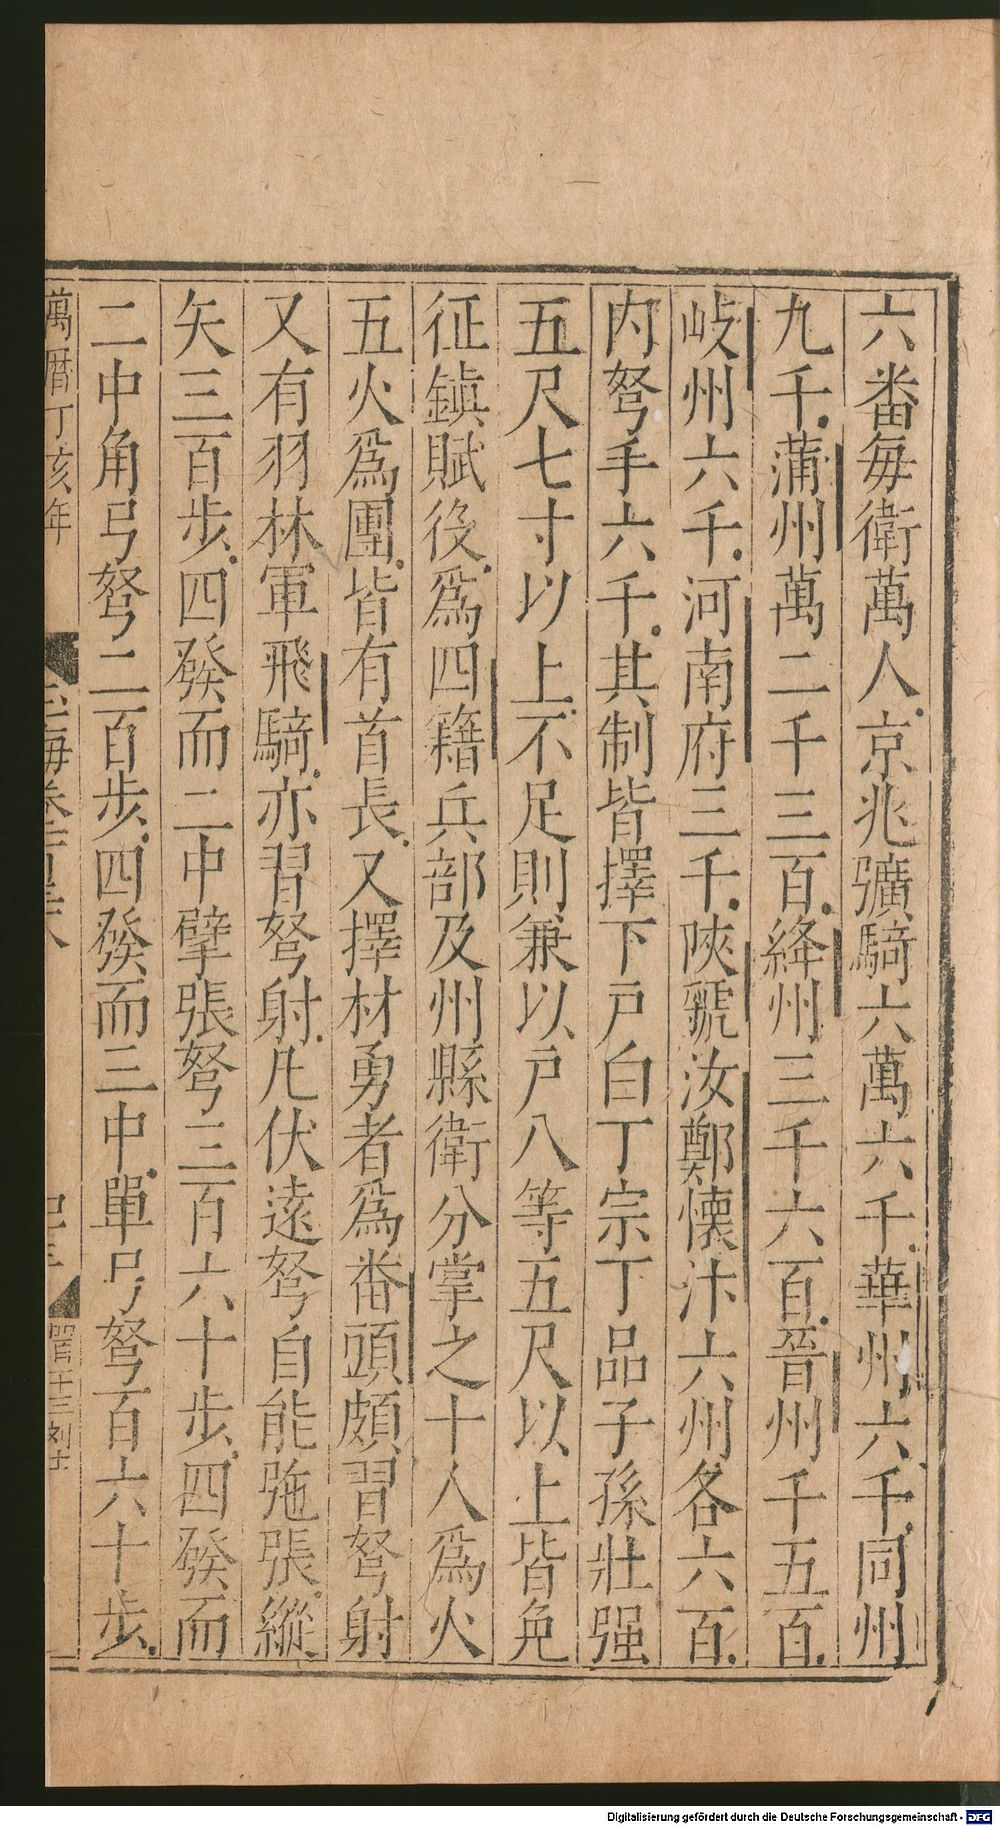 六番每衛萬人京兆彍騎六萬六千華州六千同州
九千蒲州萬二千三百絳州三千六百晉州千五百
岐州六千河南府三千陝虢汝鄭懷汴六州各六百
内弩手六千其制皆擇下戶白丁宗丁品子孫壯强
五尺七寸以上不足則兼以戶八等五尺以上皆免
征鎮賦役爲四籍兵部及州縣衛分掌之十人爲火
五火爲團皆有首長又擇材勇者爲番頭頗習弩射
又有羽林軍飛騎亦習弩射凡伏遠弩自能弛張縱
矢三百步四發而二中擘張弩二百三十步四發而
二中角弓弩二百步四發而三中單弓弩百六十步
萬曆丁亥年
Digitalisierung gefördert durch die Deutsche Forschungsgemeinschaft - DFG